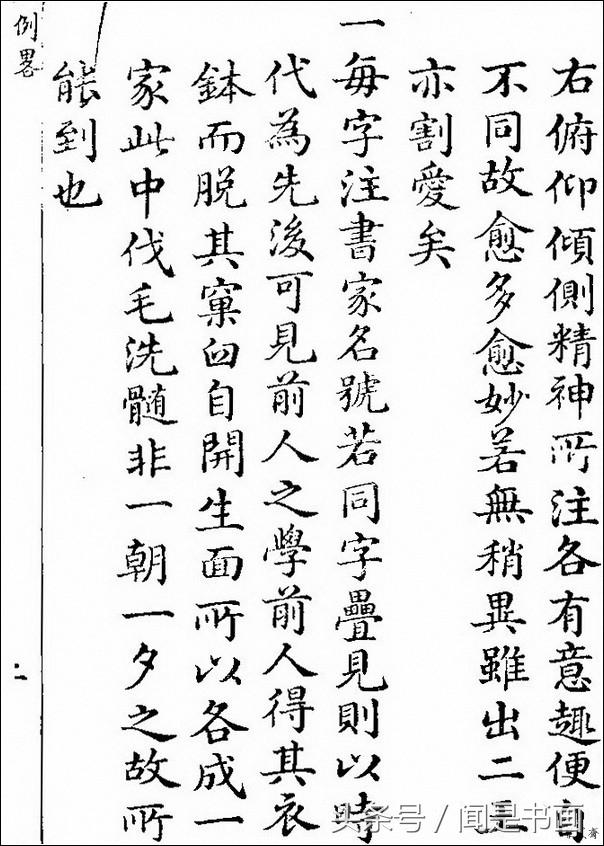 右俯仰傾側精神所注各有意趣便自
不同故愈多愈妙若無稍異雖出二王
亦割愛矣
一每字注書家名號若同字疊見則以時
代為先後可見前人之學前人得其衣
鉢而脫其窠臼自開生面所以各成一
家此中伐毛洗髓非一朝一夕之故所
能到也
例畧
头条号 / 闻是书画